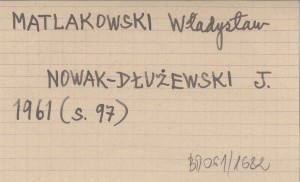 MATLAKOWSKI Władysław
NOWAK-DŁUŻEWSKI J.
1961 (s. 97)